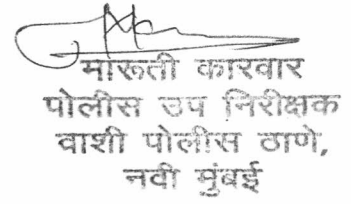 मारूती कारवार
पोलीस उप निरीक्षक
वाशी पोलीस ठाणे,
नवी मुंबई